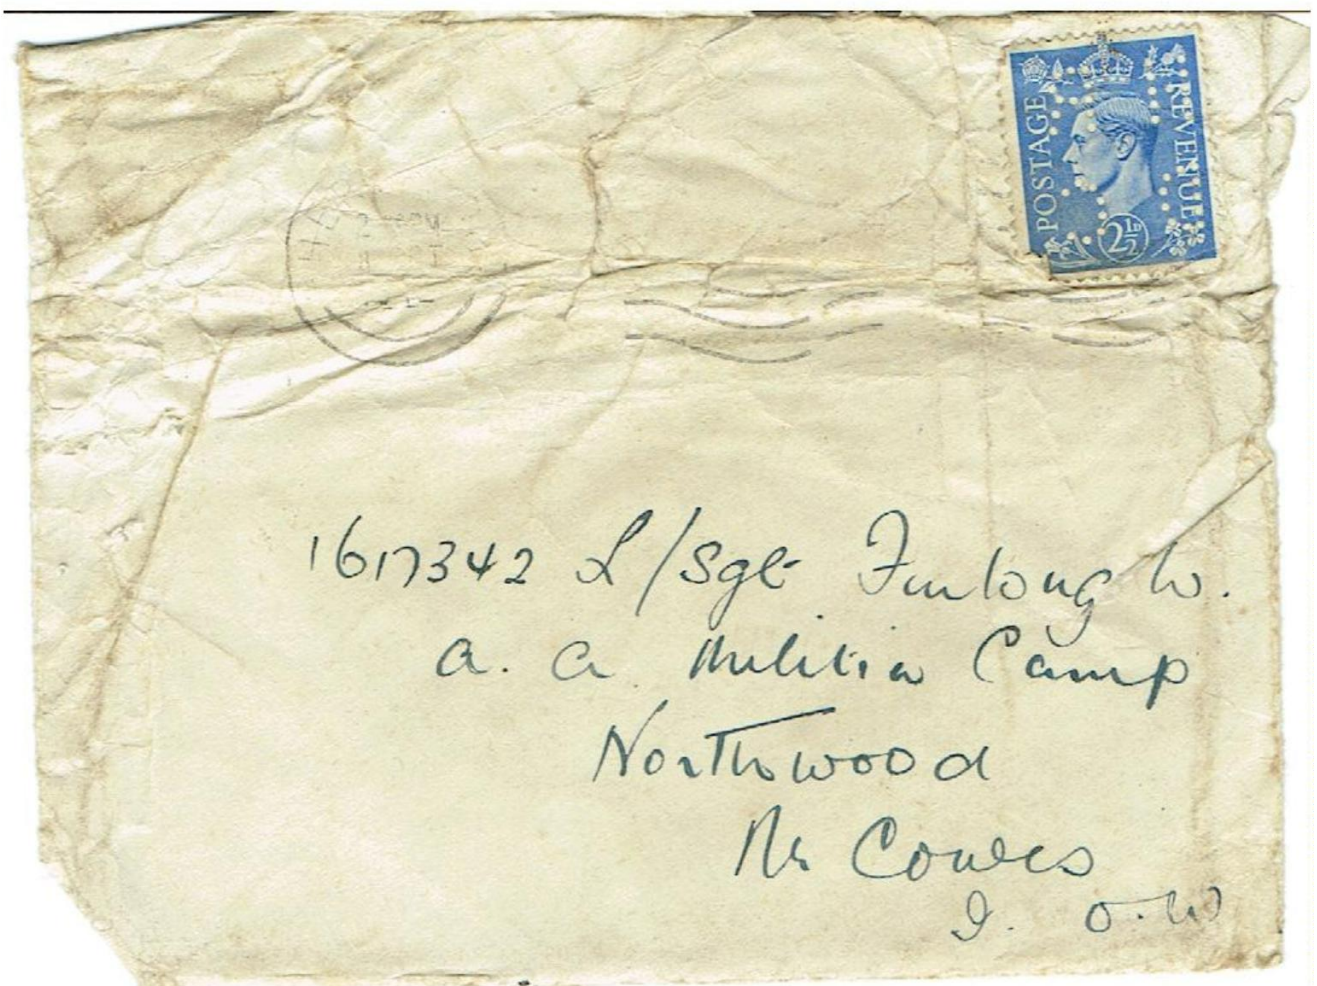 POSTAGE
REVENUE
2½D
1617342 L/Sgt Furlong W.
A. A. Militia Camp
Northwood
Nr Cowes
I. O. W